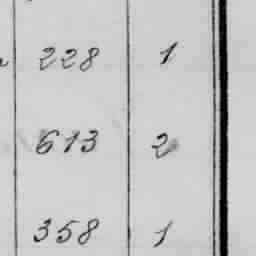 228 1
613 2
358 1